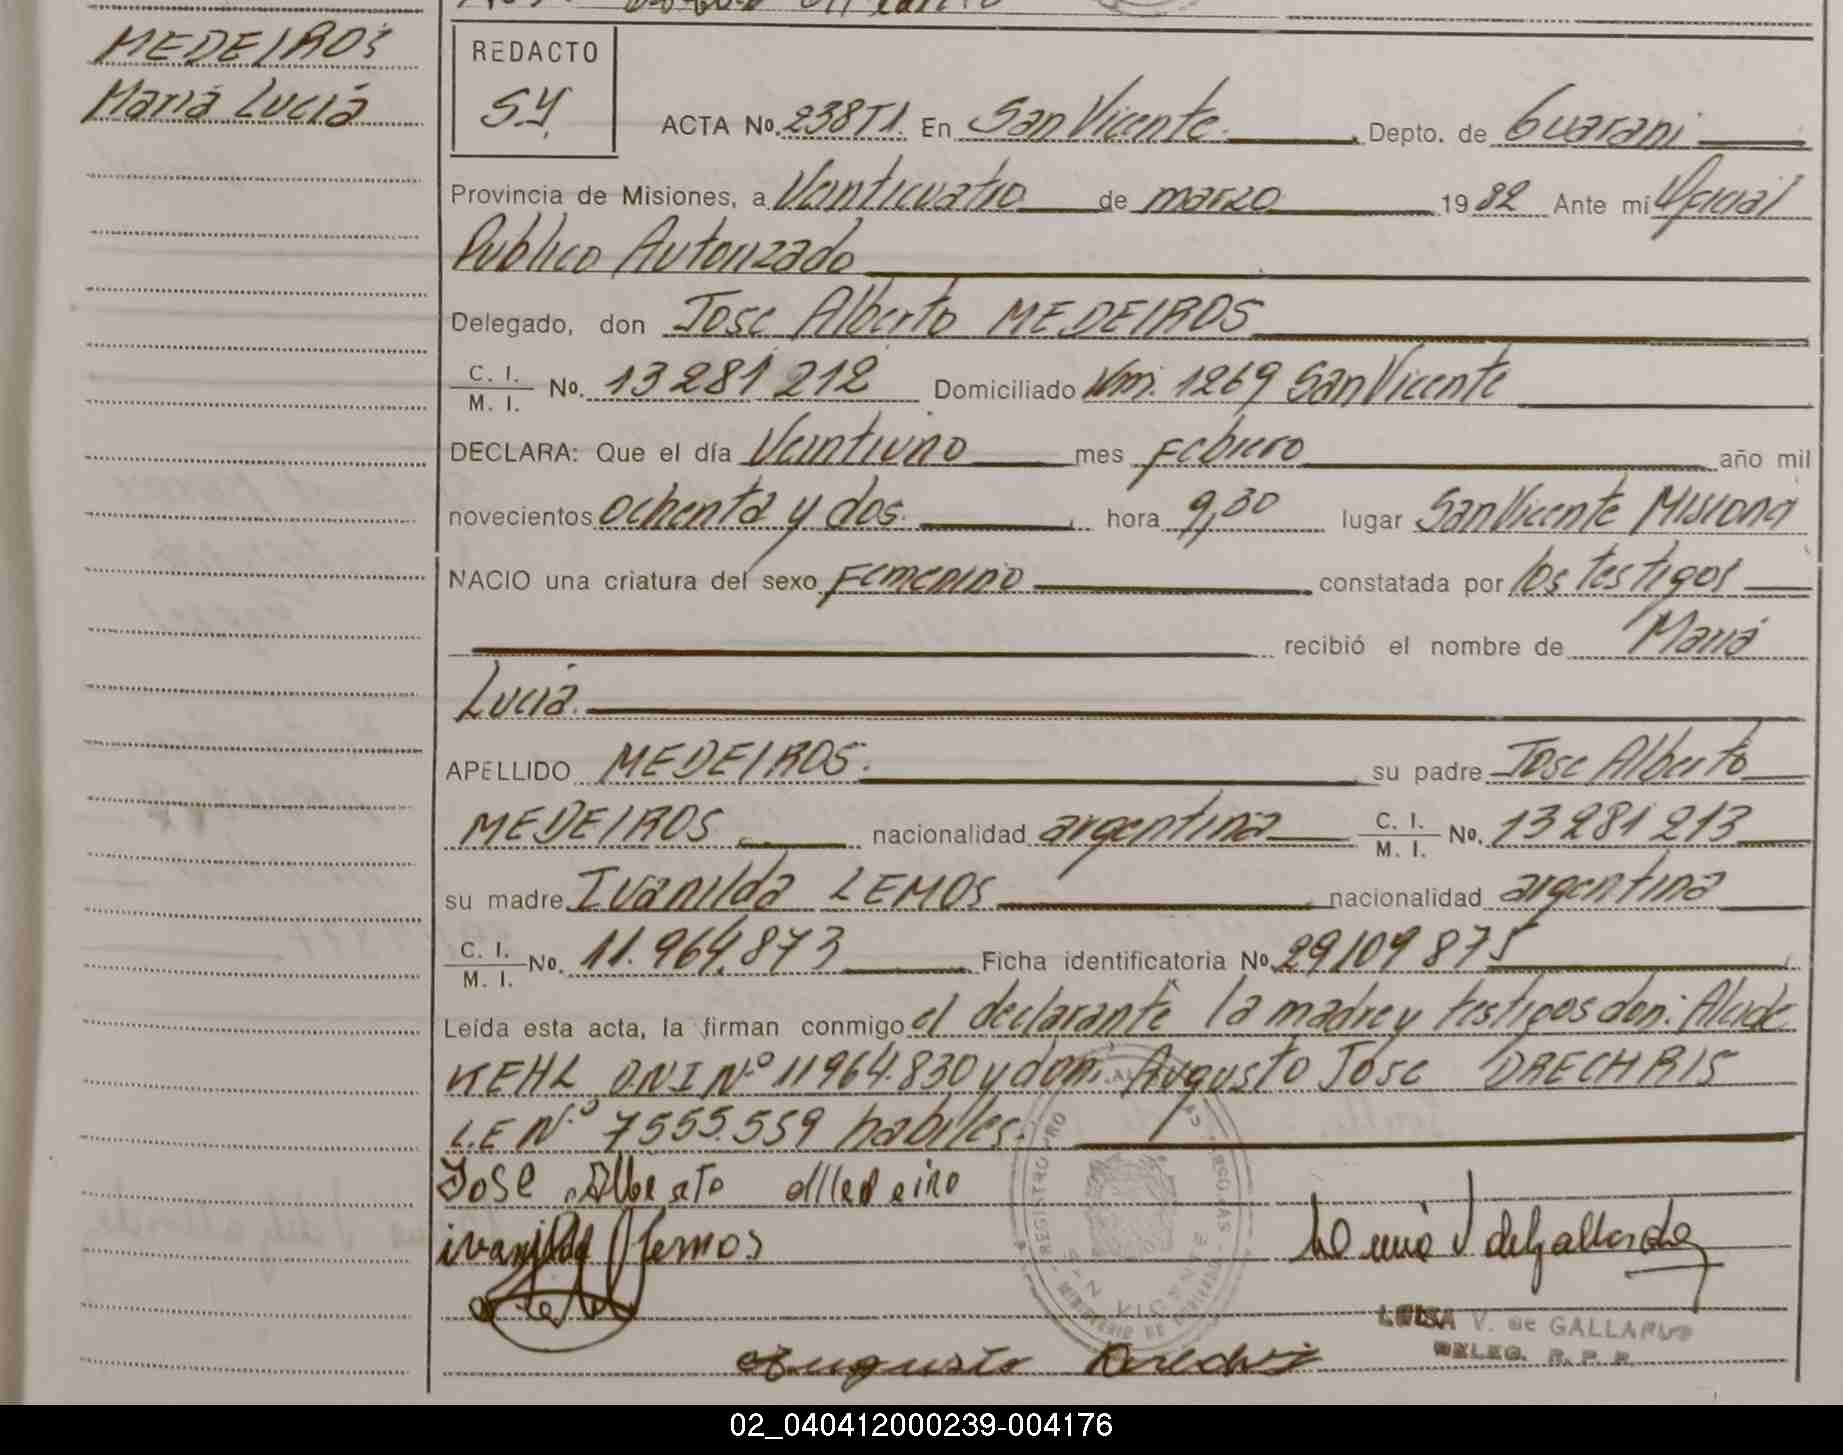 MEDEIROS
Mariá Luciá
REDACTO
SY.
ACTA No. 238T1. En San Vicente. Depto. de Guarani
Provincia de Misiones, a Veinticuatro de marzo 1982 Ante mí Oficial
Publico Autorizado
Delegado, don Jose Alberto MEDEIROS
C. I.
M. I. No. 13281212 Domiciliado Km. 1269 San Vicente
DECLARA: Que el día Veintiuno mes Febrero año mil
novecientos ochenta y dos. hora 9,30 lugar San Vicente Misiones
NACIO una criatura del sexo Femenino constatada por los testigos
recibió el nombre de Mariá
Luciá.
APELLIDO MEDEIROS. su padre Jose Alberto
MEDEIROS nacionalidad argentina C. I.
M. I. No. 13281213
su madre Ivanilda LEMOS nacionalidad argentina
C. I.
M. I. No. 11.964.873 Ficha identificatoria No. 29109875
Leída esta acta, la firman conmigo el declarante la madre y testigos don: Alcide
KEHL D.N.I Nº 11964.830 y don: Augusto Jose DRECHRIS
L.E Nº 7555.559 habiles.
Jose Alberto Medeiro
ivanilda Lemos
LUISA V. de GALLARDO
DELEG. R. P. P.
Augusto
REGISTRO
SAN VICENTE
MINISTERIO DE
02_040412000239-004176